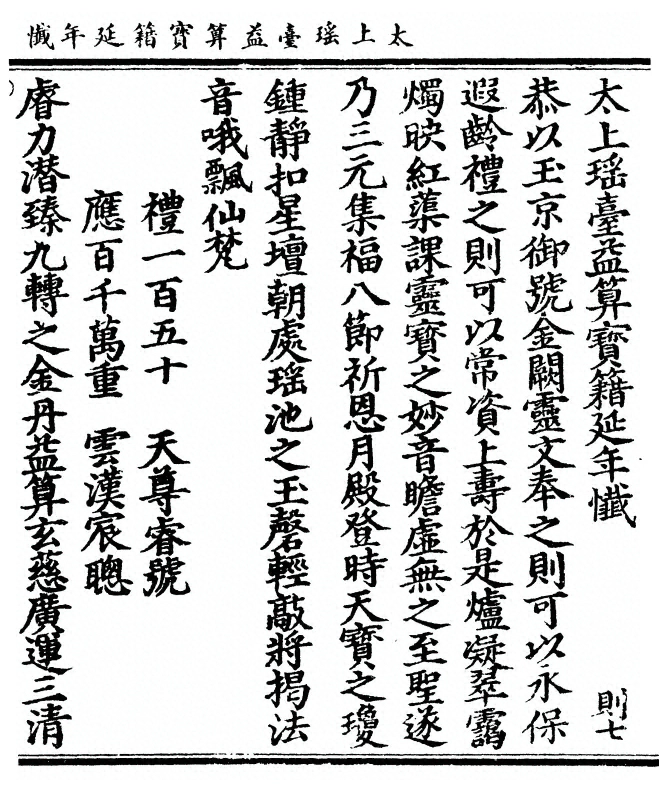 太上瑶臺益算寳籍延年懺
太上瑶臺益算寳籍延年懺
則七
恭以玉京御號金闕靈文奉之則可以永保
遐齡禮之則可以常資上壽於是爐凝翠靄
燭映紅蕖課靈寳之妙音瞻虛無之至聖遂
乃三元集福八節祈恩月殿登時天寳之瓊
鍾靜扣星壇朝處瑶池之玉磬輕敲將揭法
音哦飄仙梵
禮一百五十 天尊睿號
應百千萬重 雲漢宸聰
睿力潜臻九轉之金丹益算玄慈廣運三清